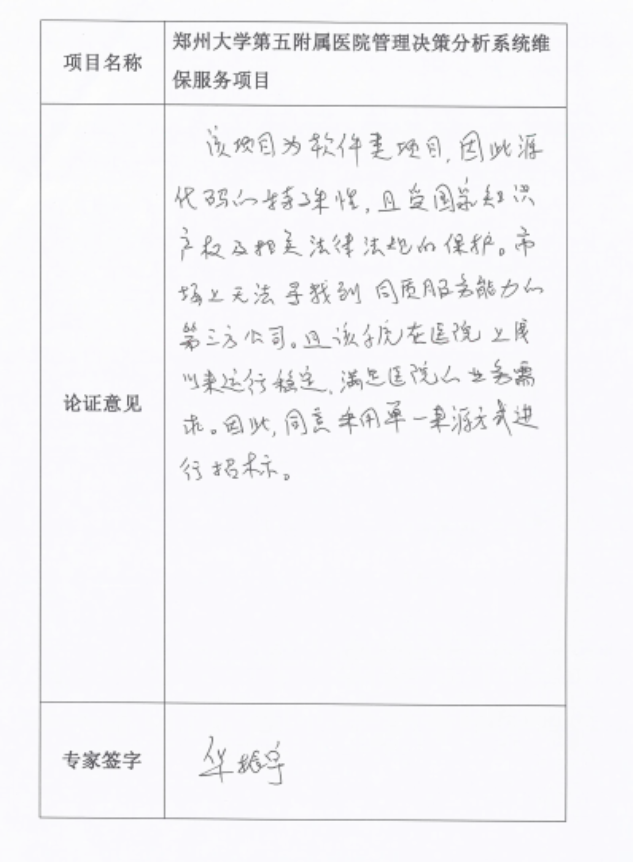 项目名称
郑州大学第五附属医院管理决策分析系统维
保服务项目
论证意见
该项目为软件类项目,因此源
代码的特殊性,且受国家知识
产权及相关法律法规的保护。市
场上无法寻找到同质服务能力的
第三方公司。且该系统在医院上线
以来运行稳定,满足医院的业务需
求。因此,同意采用单一来源方式进
行招标。
专家签字
华振宇